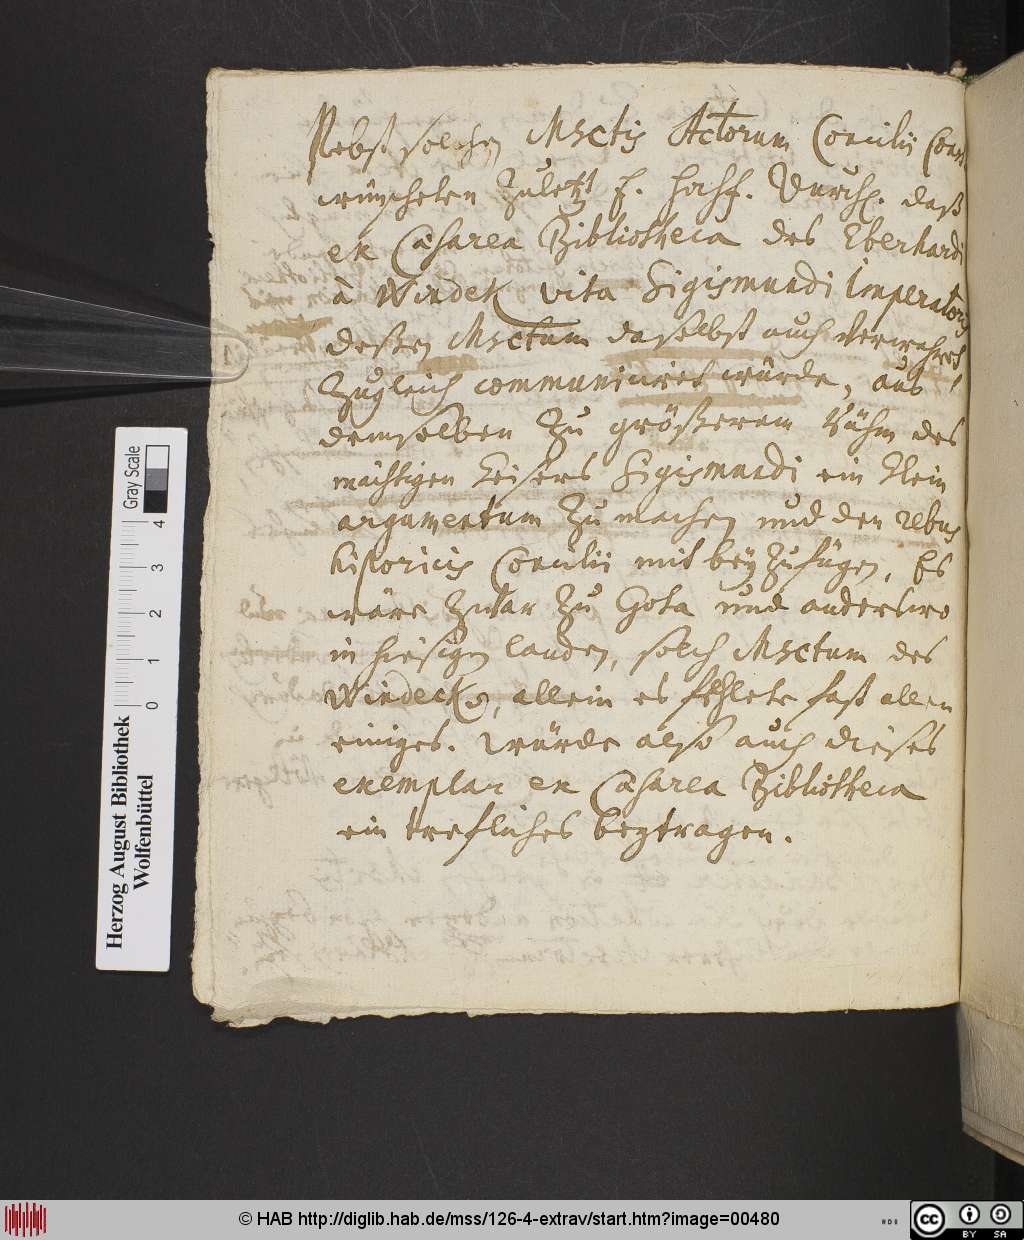 Nebst solchen Msctis Actorum Concilii Const.
wünscheten zuletzt E. Hochf. Durchl. daß
ex Caesarea Bibliotheca des Eberhardi
à Windek vita Sigismundi Imperatoris
deßen Msctum daselbst auch verwahret
zugleich communiciret würde, aus
demselben zu größerem Ruhm des
mächtigen Keisers Sigismundi ein klein
argumentum zu machen und den rebus
historicis Concilii mit beyzufügen, Es
wäre zwar zu Gota und anderswo
in hiesigen landen, solch Msctum des
Windecks, allein es fehlete fast allen
einiges. Würde also auch dieses
exemplar ex Caesarea Bibliotheca
ein trefliches beytragen.
Gray Scale
0 1 2 3 4
Herzog August Bibliothek
Wolfenbüttel
© HAB http://diglib.hab.de/mss/126-4-extrav/start.htm?image=00480
cc BY SA